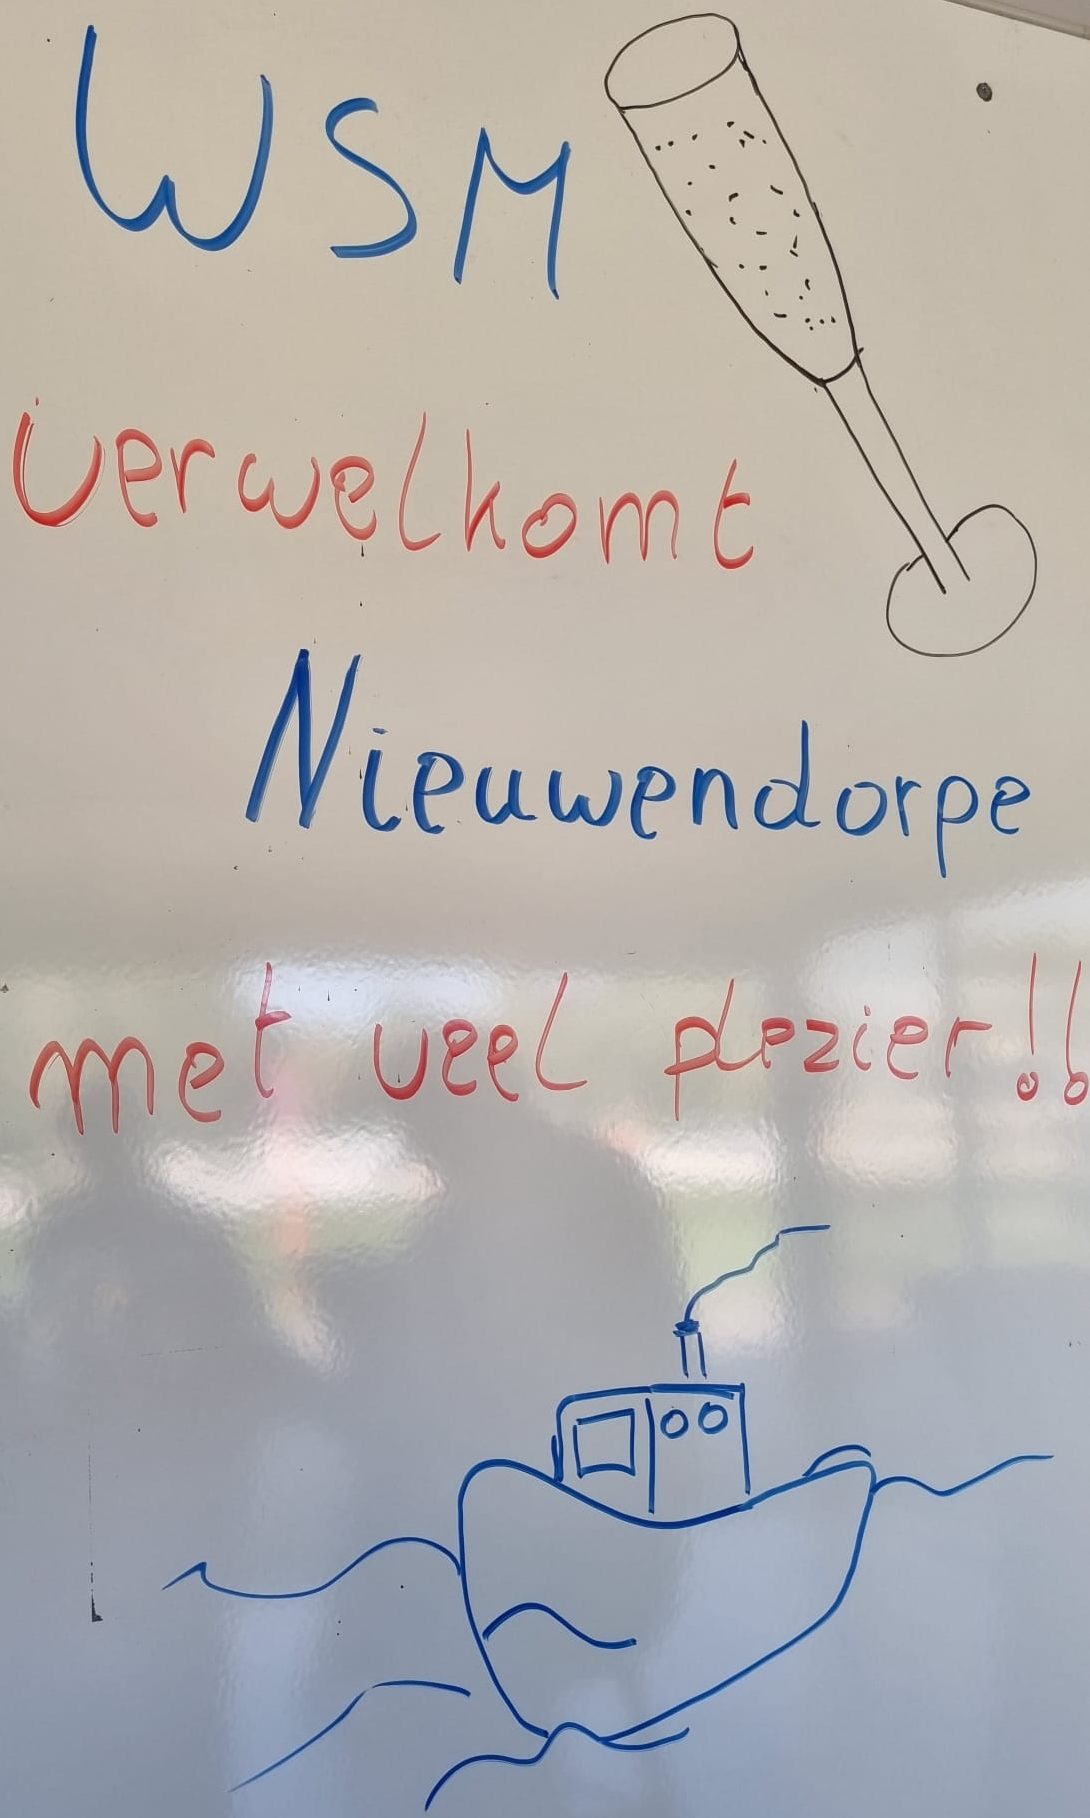 WSM
verwelkomt
Nieuwendorpe
met veel plezier!!